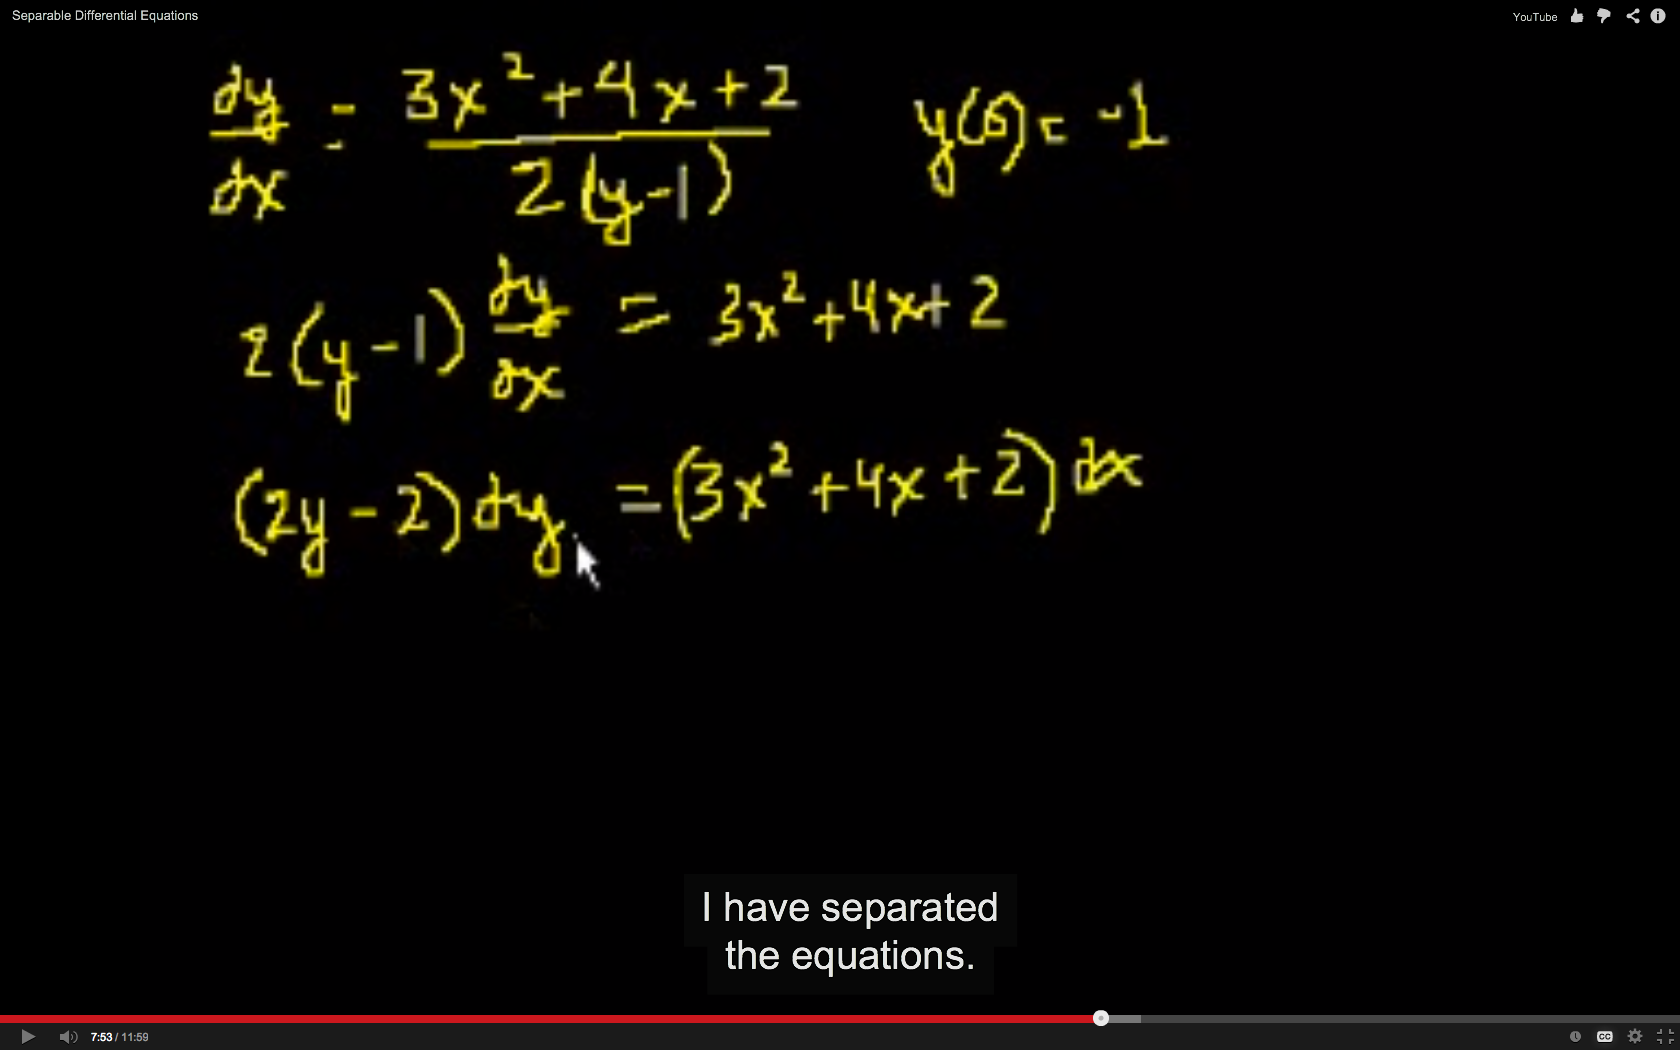 Separable Differential Equations
YouTube
dy/dx = (3x² + 4x + 2) / (2(y - 1))    y(0) = -1
2(y - 1) dy/dx = 3x² + 4x + 2
(2y - 2) dy = (3x² + 4x + 2) dx
I have separated
the equations.
7:53 / 11:59
CC